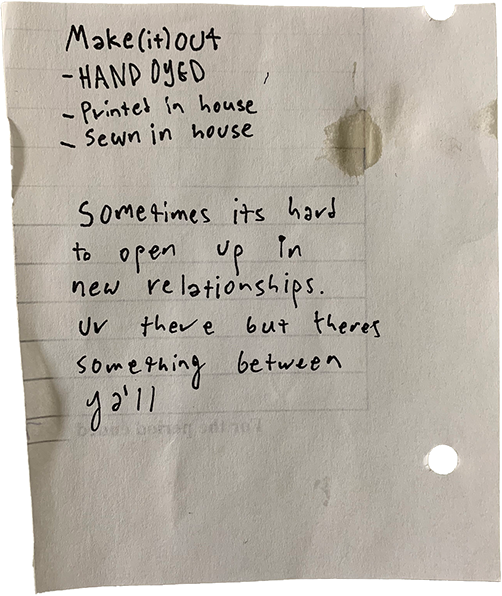 Make(it)out
- HAND DYED
- Printed in house
- Sewn in house
Sometimes its hard
to open up in
new relationships.
Ur there but theres
something between
ya'll
For the period ended